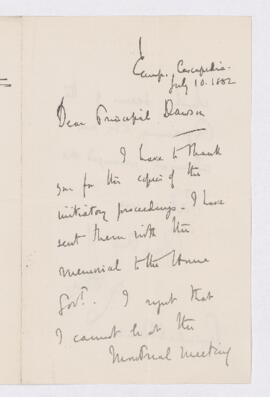 Camp. Cascapedia.
July 10. 1882
Dear Principal Dawson
I have to thank
you for the copies of the
initiatory proceedings. I have
sent them with the
memorial to the Home
Govt. I regret that
I cannot be at the
Montreal meeting